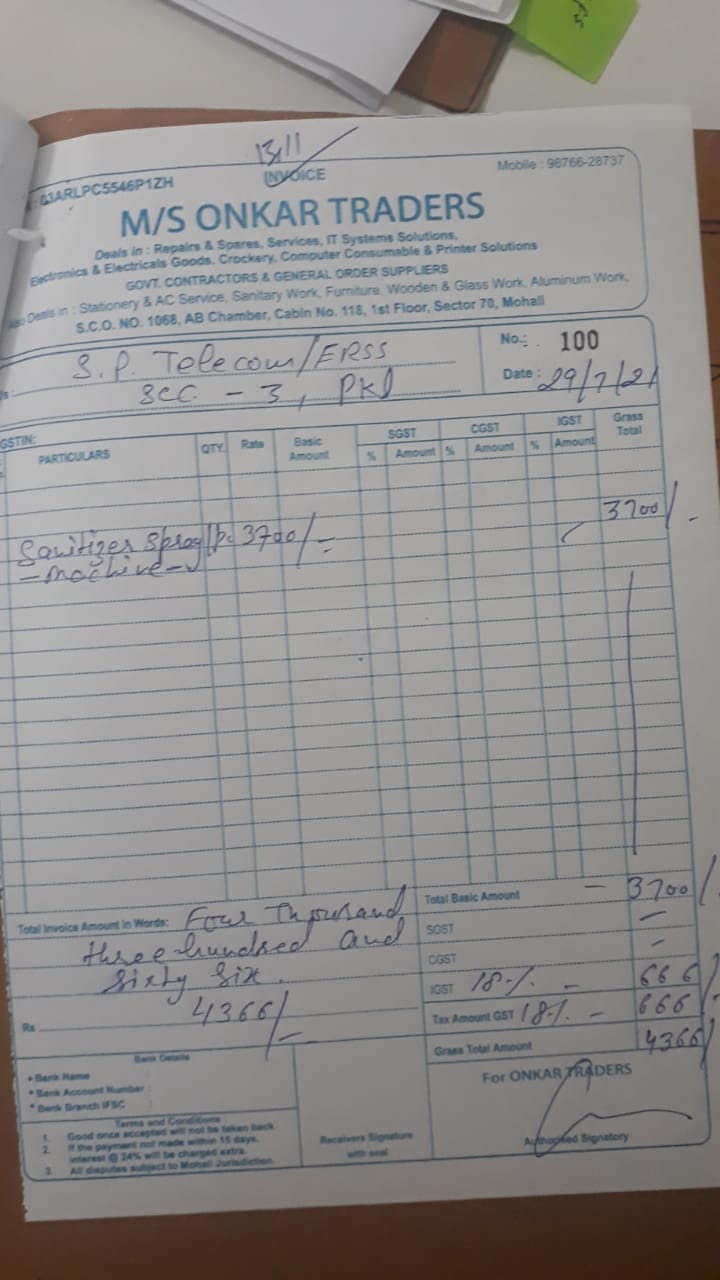 13/11
: 03ARLPC5546P1ZH
INVOICE
Mobile : 98766-28737
M/S ONKAR TRADERS
Deals in : Repairs & Spares, Services, IT Systems Solutions,
Electronics & Electricals Goods, Crockery, Computer Consumable & Printer Solutions
GOVT. CONTRACTORS & GENERAL ORDER SUPPLIERS
Also Deals in : Stationery & AC Service, Sanitary Work, Furniture, Wooden & Glass Work, Aluminum Work,
S.C.O. NO. 1068, AB Chamber, Cabin No. 118, 1st Floor, Sector 70, Mohali
S.P. Telecom/ERSS
Sec - 3, Pkl
No.: 100
Date : 29/7/21
GSTIN:
PARTICULARS QTY. Rate Basic Amount SGST % Amount CGST % Amount IGST % Amount Grass Total
Sanitizer Spray 1Pc 3700/- 3700/-
- machine -
Total Basic Amount - 3700/
Total Invoice Amount in Words: Four Thousand
three hundred and
sixty six.
SGST -
CGST -
IGST 18% - 666/
Rs 4366/-
Tax Amount GST 18% - 666/
Grass Total Amount 4366/
Bank Details
* Bank Name
* Bank Account Number :
* Bank Branch IFSC :
Terms and Conditions :
1. Good once accepted will not be taken back.
2. If the payment not made within 15 days,
interest @ 24% will be charged extra.
3. All disputes subject to Mohali Jurisdiction.
Receivers Signature
with seal
For ONKAR TRADERS
Authorised Signatory